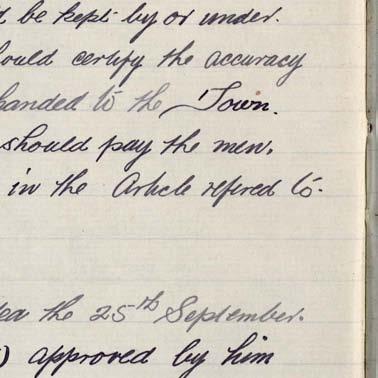 d be kept by or under.
ould certify the accuracy
handed to the Town.
should pay the men.
in the Article refered to.
the 25th September.
) approved by him